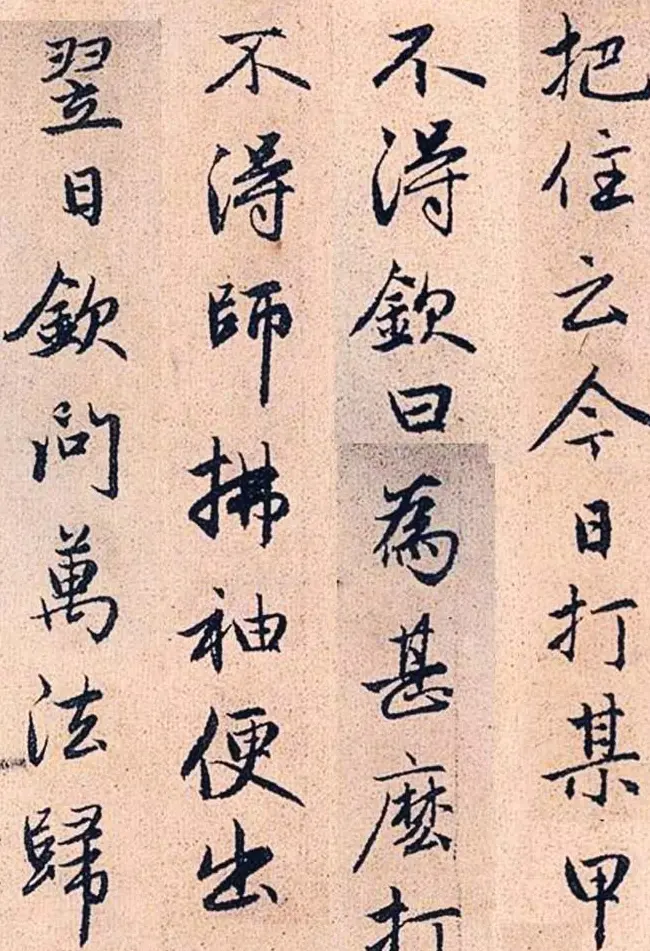 把住云今日打某甲
不得欽曰為甚麼打
不得師拂袖便出
翌日欽問萬法歸